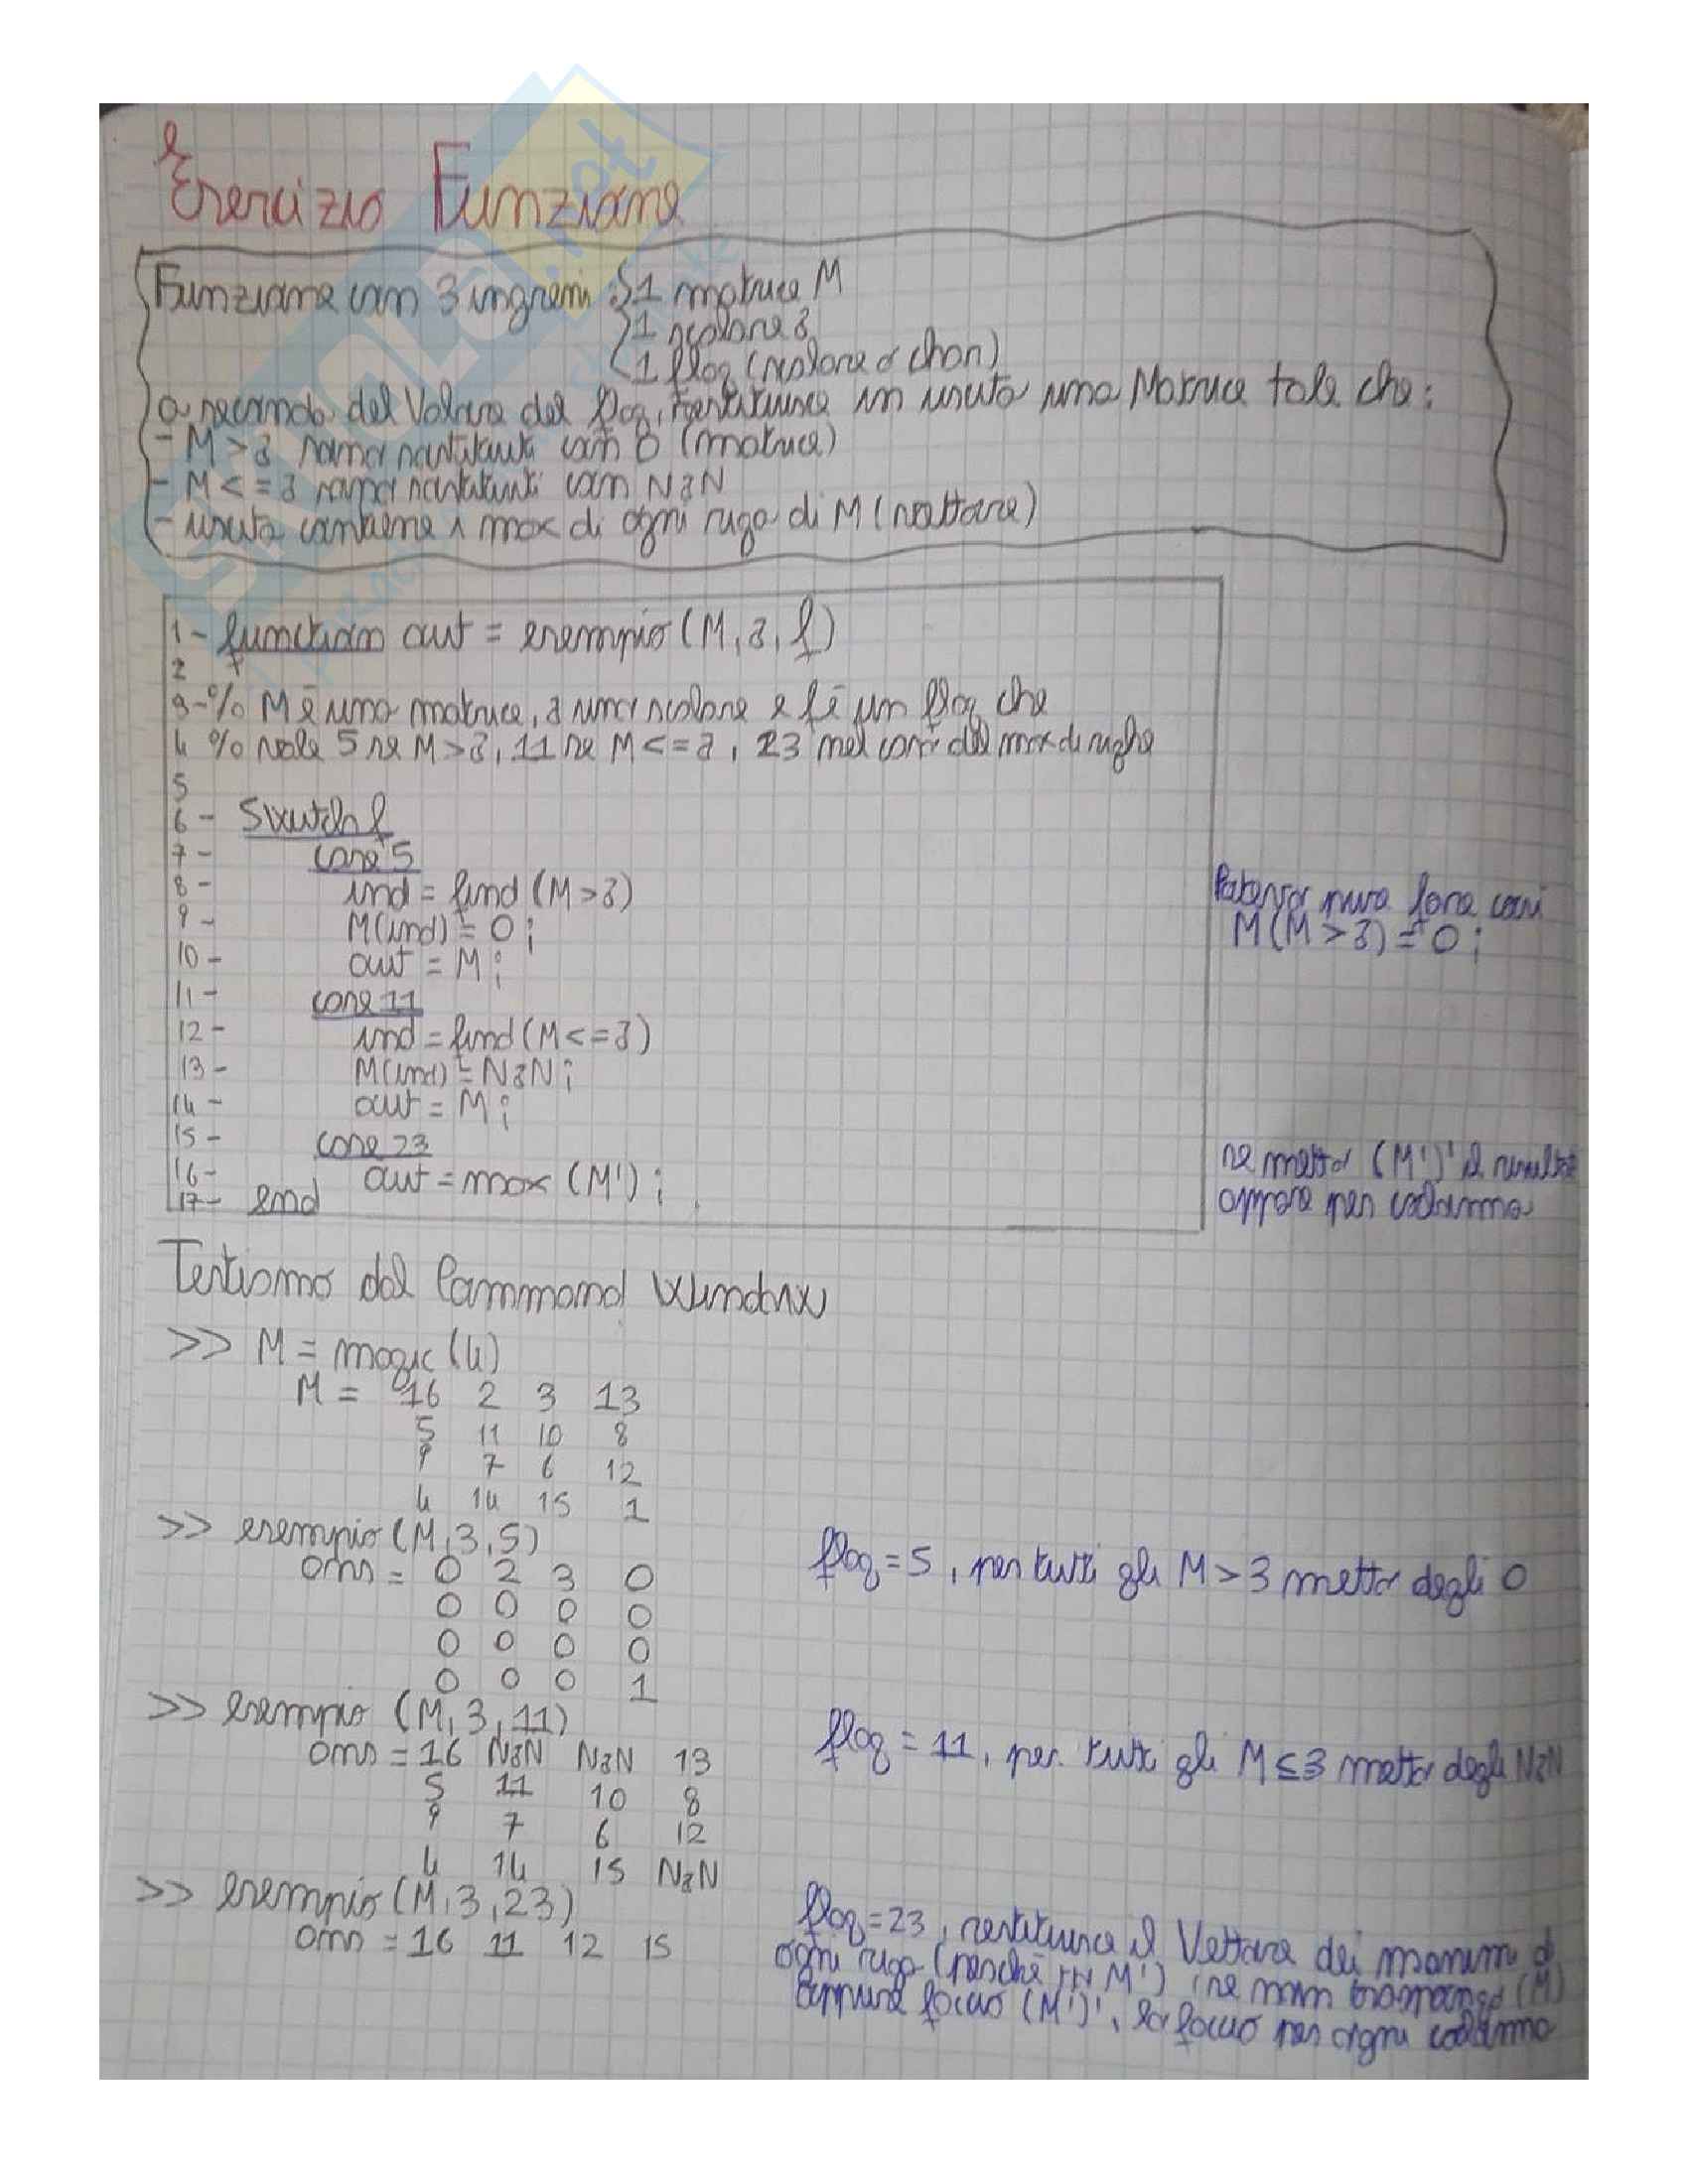 Esercizio Funzione
Funzione con 3 ingressi: 1 matrice M
1 scalare a
1 flag (scalare o char)
a seconda del Valore del flag, restituisce in uscita una Matrice tale che:
- M > a sono sostituiti con 0 (matrice)
- M <= a sono sostituiti con NaN
- uscita contiene i max di ogni riga di M (vettore)
1- function out = esempio (M, a, f)
2
3- % M è una matrice, a uno scalare e f è un flag che
4 % vale 5 se M > a, 11 se M <= a, 23 nel caso del max di righe
5
6- Switch f
7- case 5
8- ind = find (M > a)
9- M(ind) = 0;
10- out = M;
11- case 11
12- ind = find (M <= a)
13- M(ind) = NaN;
14- out = M;
15- case 23
16- out = max (M');
17- end
Potevo pure fare così
M(M > a) = 0;
se metto (M')' il risultato
appare per colonna
Testiamo dal Command Window
>> M = magic (4)
M = 16 2 3 13
5 11 10 8
9 7 6 12
4 14 15 1
>> esempio (M, 3, 5)
ans = 0 2 3 0
0 0 0 0
0 0 0 0
0 0 0 1
flag = 5, per tutti gli M > 3 metto degli 0
>> esempio (M, 3, 11)
ans = 16 NaN NaN 13
5 11 10 8
9 7 6 12
4 14 15 NaN
flag = 11, per tutti gli M ≤ 3 metto degli NaN
>> esempio (M, 3, 23)
ans = 16 11 12 15
flag = 23, restituisce il Vettore dei massimi di
ogni riga (perché M') se non traspongo (M)
oppure faccio (M')', lo faccio per ogni colonna
SKUOLA.net